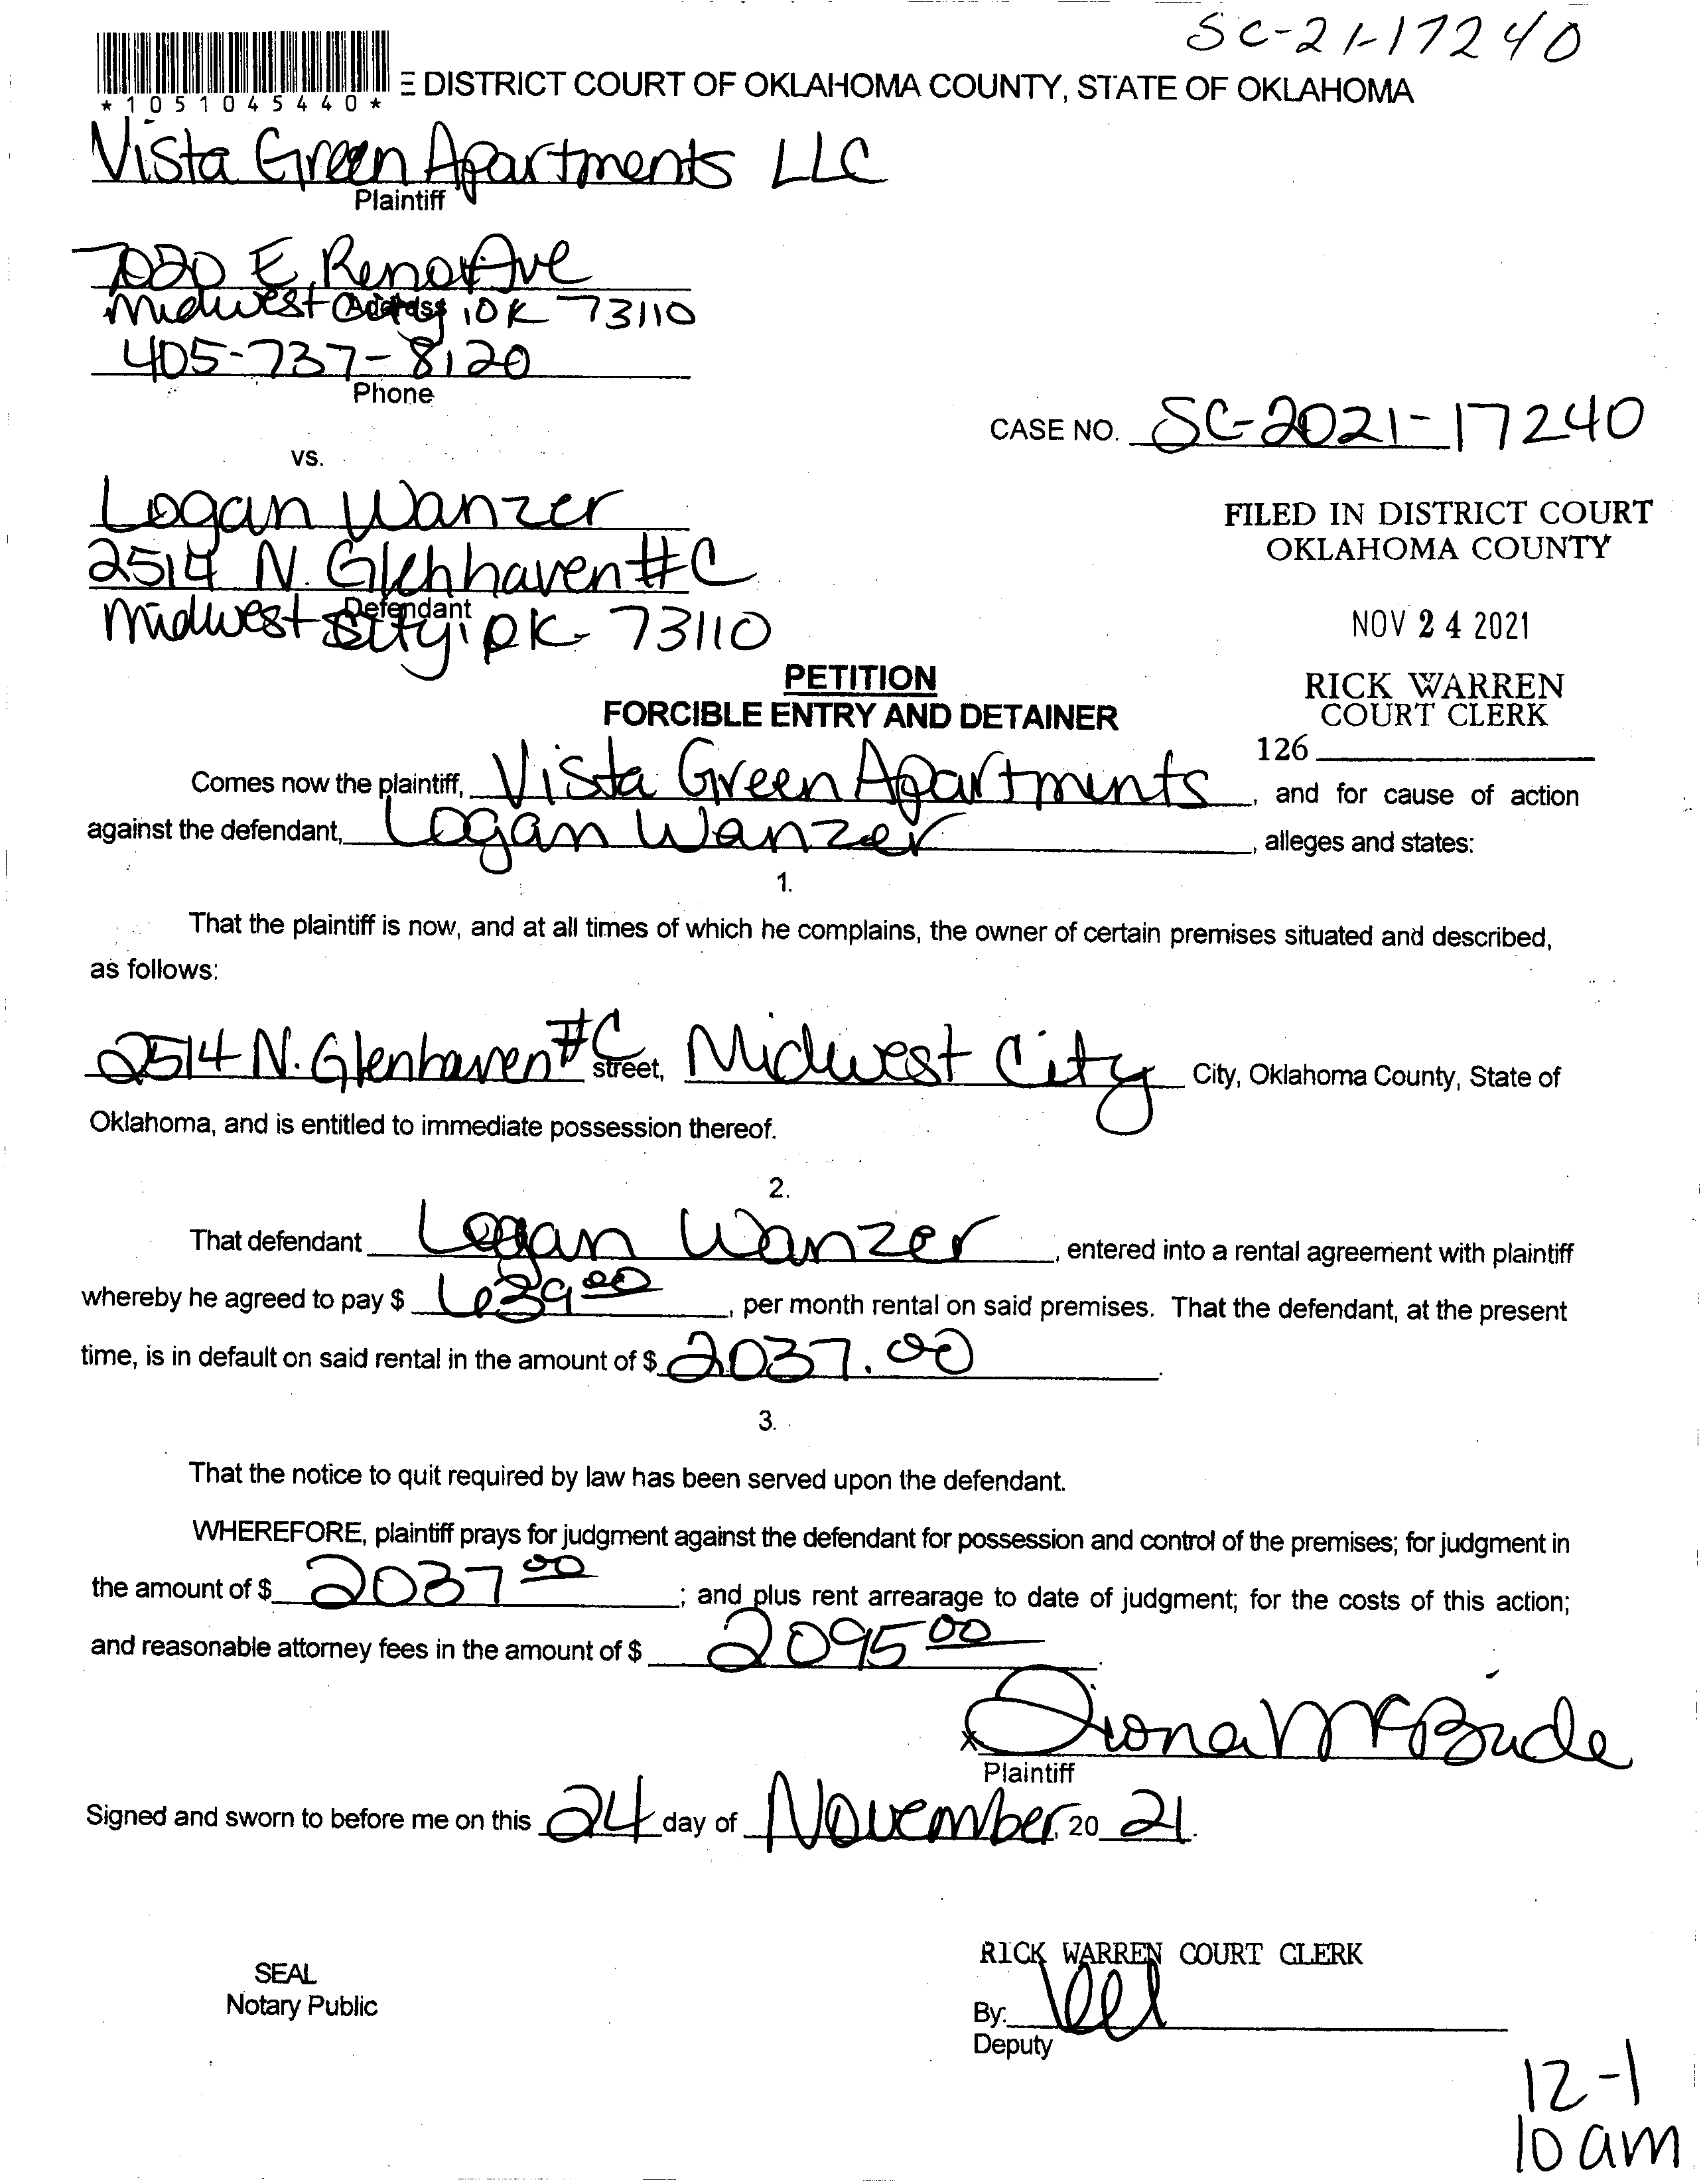 SC-21-17240
*1051045440*
E DISTRICT COURT OF OKLAHOMA COUNTY, STATE OF OKLAHOMA
Vista Green Apartments LLC
Plaintiff
7020 E. Reno Ave
Address
Midwest City, OK 73110
405-737-8120
Phone
CASE NO. SC-2021-17240
vs.
Logan Wanzer
2514 N. Glenhaven #C
Defendant
Midwest City, OK 73110
FILED IN DISTRICT COURT
OKLAHOMA COUNTY
NOV 24 2021
RICK WARREN
COURT CLERK
126
PETITION
FORCIBLE ENTRY AND DETAINER
Comes now the plaintiff, Vista Green Apartments, and for cause of action
against the defendant, Logan Wanzer, alleges and states:
1.
That the plaintiff is now, and at all times of which he complains, the owner of certain premises situated and described,
as follows:
2514 N. Glenhaven #C street, Midwest City City, Oklahoma County, State of
Oklahoma, and is entitled to immediate possession thereof.
2.
That defendant Logan Wanzer, entered into a rental agreement with plaintiff
whereby he agreed to pay $ 639 00, per month rental on said premises. That the defendant, at the present
time, is in default on said rental in the amount of $ 2037.00.
3.
That the notice to quit required by law has been served upon the defendant.
WHEREFORE, plaintiff prays for judgment against the defendant for possession and control of the premises; for judgment in
the amount of $ 2037 00; and plus rent arrearage to date of judgment; for the costs of this action;
and reasonable attorney fees in the amount of $ 2095 00.
x Diona McBride
Plaintiff
Signed and sworn to before me on this 24 day of November, 20 21.
SEAL
Notary Public
RICK WARREN COURT CLERK
By:
Deputy
12-1
10 am